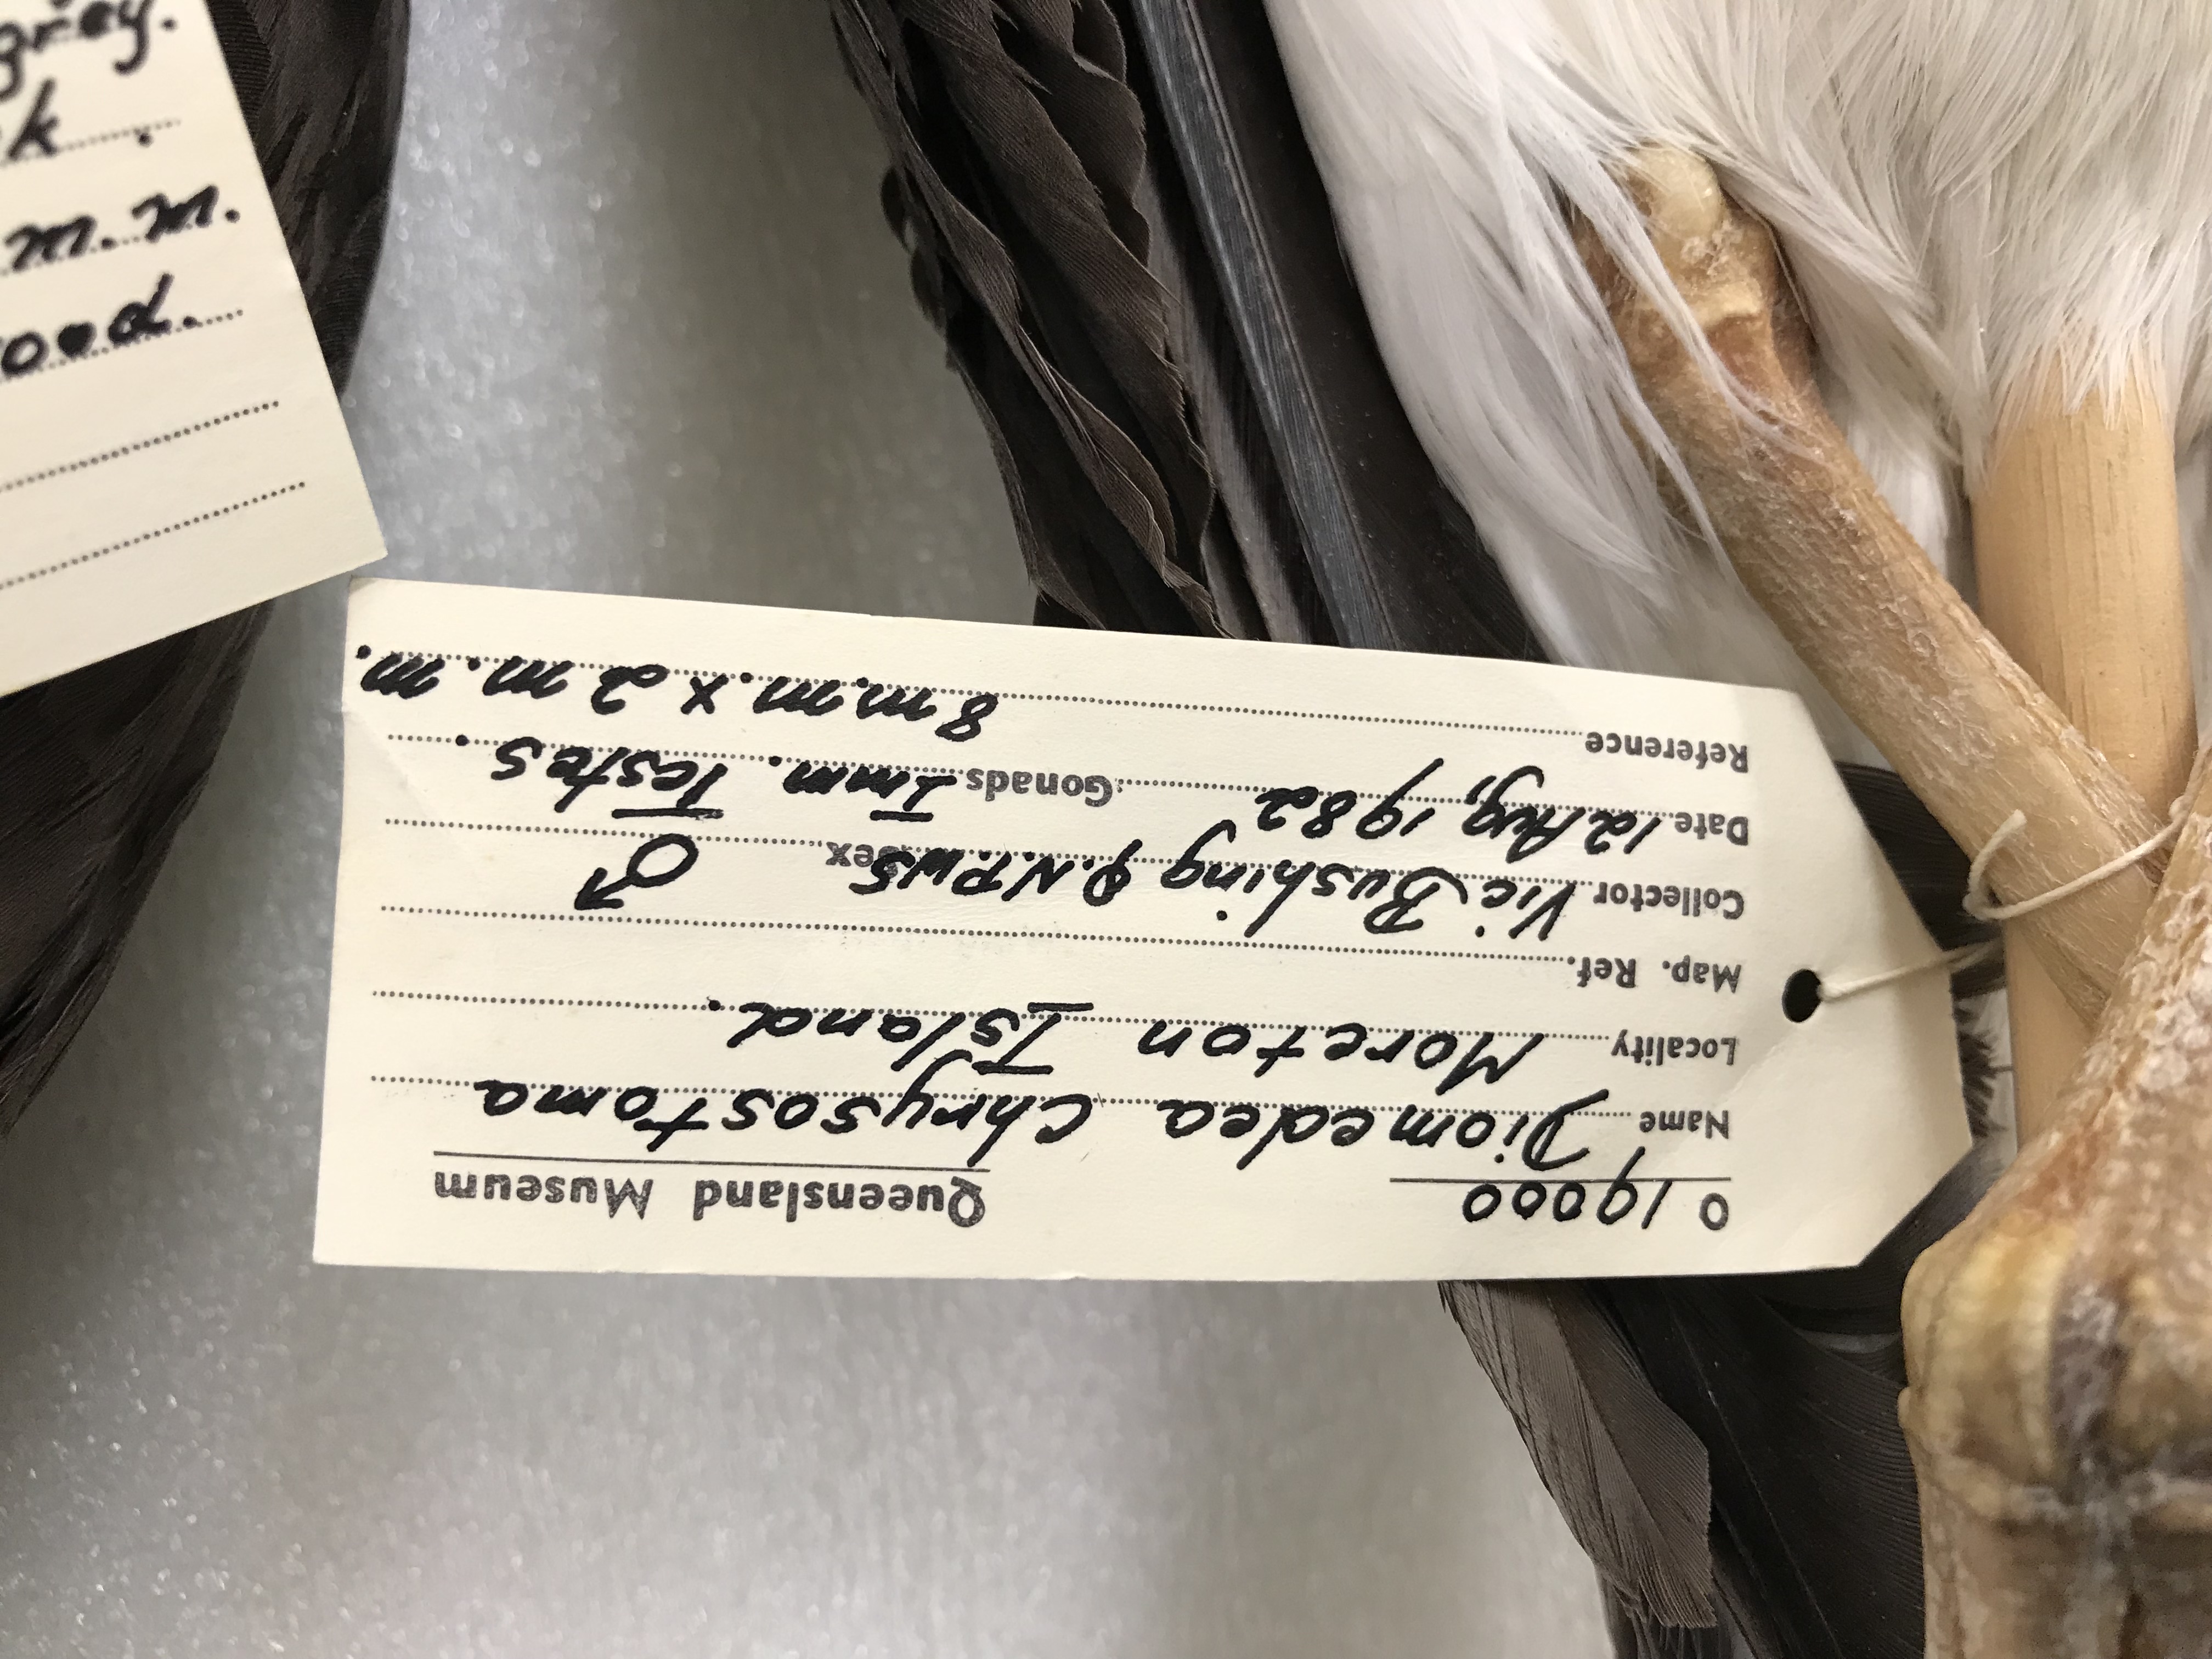 O 19000 Queensland Museum
Name Diomedea chrysostoma
Locality Moreton Island.
Map. Ref.
Collector Vic Bushing Q.N.P.W.S Sex ♂
Date 12 Aug, 1982 Gonads Imm. Testes.
Reference 8 m.m. x 2 m.m.
grey.
m.m.